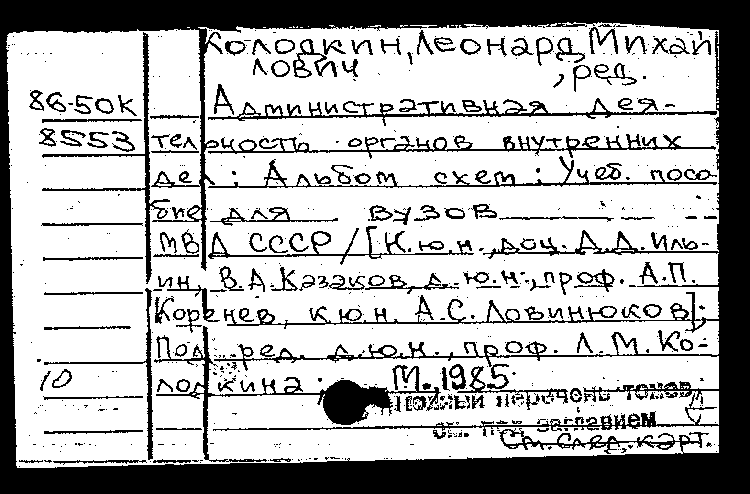 Колодкин, Леонард Михай
лович, ред.
86-50К Административная дея-
8553 тельность органов внутренних
дел : Альбом схем : Учеб. посо-
бие для вузов
МВД СССР / [К.ю.н., доц. А.Д. Иль-
ин, В.А. Казаков, д.ю.н., проф. А.П.
Коренев, к.ю.н. А.С. Ловинюков];
Под ред. д.ю.н., проф. Л.М. Ко-
10 лодкина ; М., 1985.
Полный перечень томов
см. под заглавием
См. след. карт.